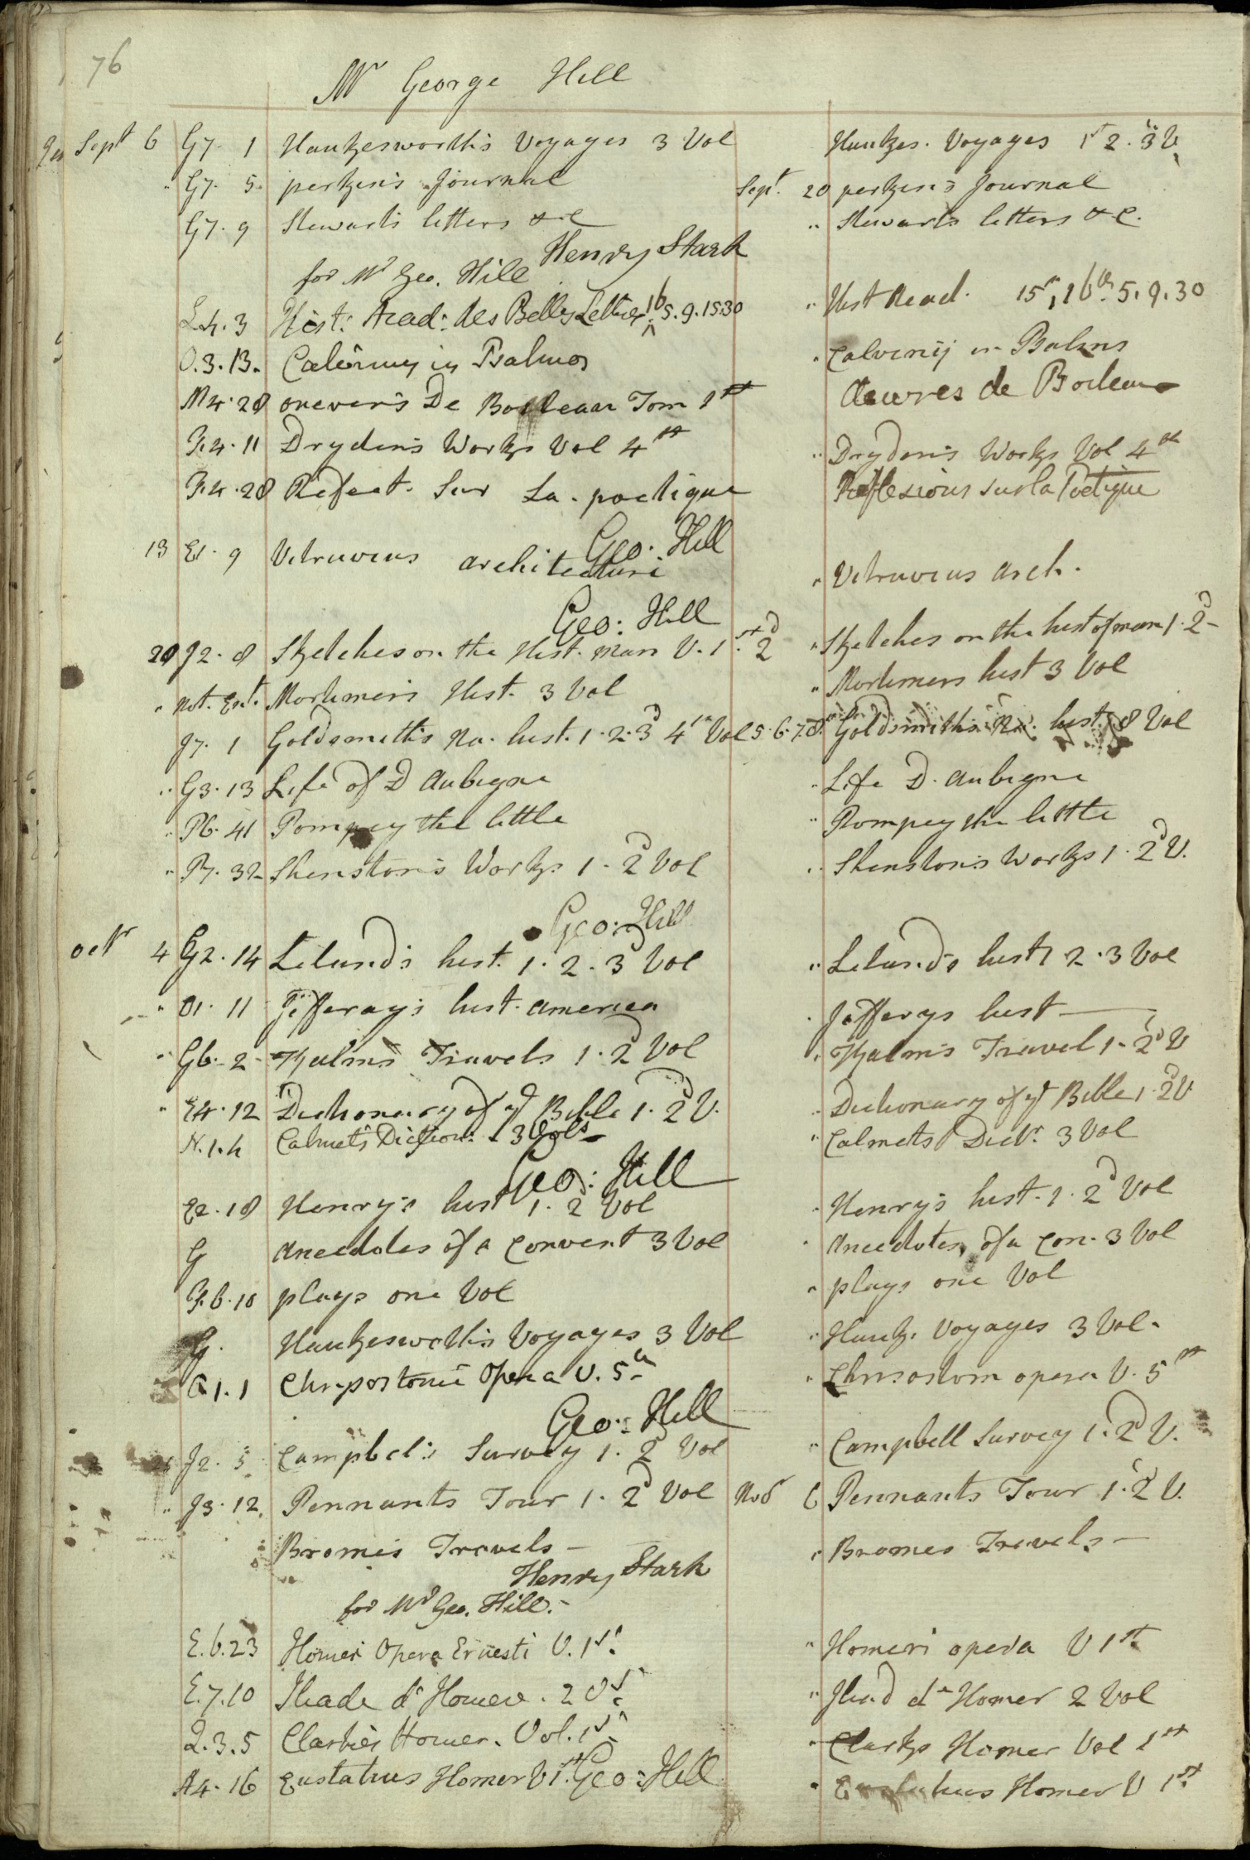 76
Mr George Hill
Sept 6 G7 1 Hawkesworth's Voyages 3 Vol Hawkes. Voyages 1st 2. 3 V
" G7. 5 perkin's Journal Sept. 20 perkin's Journal
G7. 9 Stewarts letters &c " Stewarts letters &c.
Henry Stark
for Mr Geo. Hill
L.4.3 Hist: Acad: des Belles Lettres 16 5.9.15 30 " Hist Acad. 15th, 16th. 5. 9. 30
O.3.13. in Psalmos in Psalms
M4.28 De Boileau Tom 1st Oeuvres de Boileau
F.4.11 Dryden's Works Vol 4th " Dryden's Works Vol 4th
F.4.28 Reflect. Sur La. poetique Reflexions sur la Poetique
Geo. Hill
13 E1. 9 Vitruvius architecture " Vitruvius arch.
Geo: Hill
20 J2. 8 Sketches on the Hist. Man V. 1st. 2d " Sketches on the hist of man 1. 2d
" Not. Ent. Mortimers Hist. 3 Vol " Mortimers hist 3 Vol
J7. 1 Goldsmith's Na. hist. 1. 2. 3d 4th Vol 5. 6. 7. 8th Goldsmiths Na. hist. 8 Vol
" G3. 13 Life of D Aubigne " Life D. Aubigne
" P6. 41 Pompey the little " Pompey the little
" P7. 32 Shenston's Works 1. 2d Vol " Shenston's Works 1. 2d V.
Geo: Hill
Octr 4 G2. 14 Leland's hist. 1. 2. 3d Vol " Leland's hist 1 2. 3 Vol
" O1. 11 Jefferay's hist. America Jefferys hist
" G6. 2 Kalm's Travels 1. 2d Vol " Kalm's Travel 1. 2d V
" E4. 12 Dictionary of ye Bible 1. 2d V. " Dictionary of ye Bible 1. 2d V.
N.1.4 Calmet's Diction. 3 Vols " Calmets Dictr. 3 Vol
Geo: Hill
E2. 18 Henry's hist 1. 2 Vol " Henry's hist. 1. 2d Vol
G Anecdotes of a Convent 3 Vol " Anecdotes of a Con. 3 Vol
F.6.10 plays one Vol " plays one Vol
G. Hawkesworth's Voyages 3 Vol " Hawk. Voyages 3 Vol.
Q1.1 Chrysostomi Opera V. 5th " Chrisostom opera V. 5th
Geo: Hill
J2. 5 Campbel's Survey 1. 2d Vol " Campbell Survey 1. 2d V.
" J3. 12. Pennants Tour 1. 2d Vol Novr 6 Pennants Tour 1. 2d V.
Brome's Travels " Bromes Travels
Henry Stark
for Mr Geo. Hill.
E.6.23 Homeri Opera Ernesti V. 1st. " Homeri opera V 1st
E.7.10 Iliade d'Homere. 2 Vs. " Iliad d'Homer 2 Vol
Q.3.5 Clarkes Homer. Vol. 1st. " Clarks Homer Vol 1st
A4. 16 Eustatius Homer V 1st. Geo: Hill " Homer V 1st